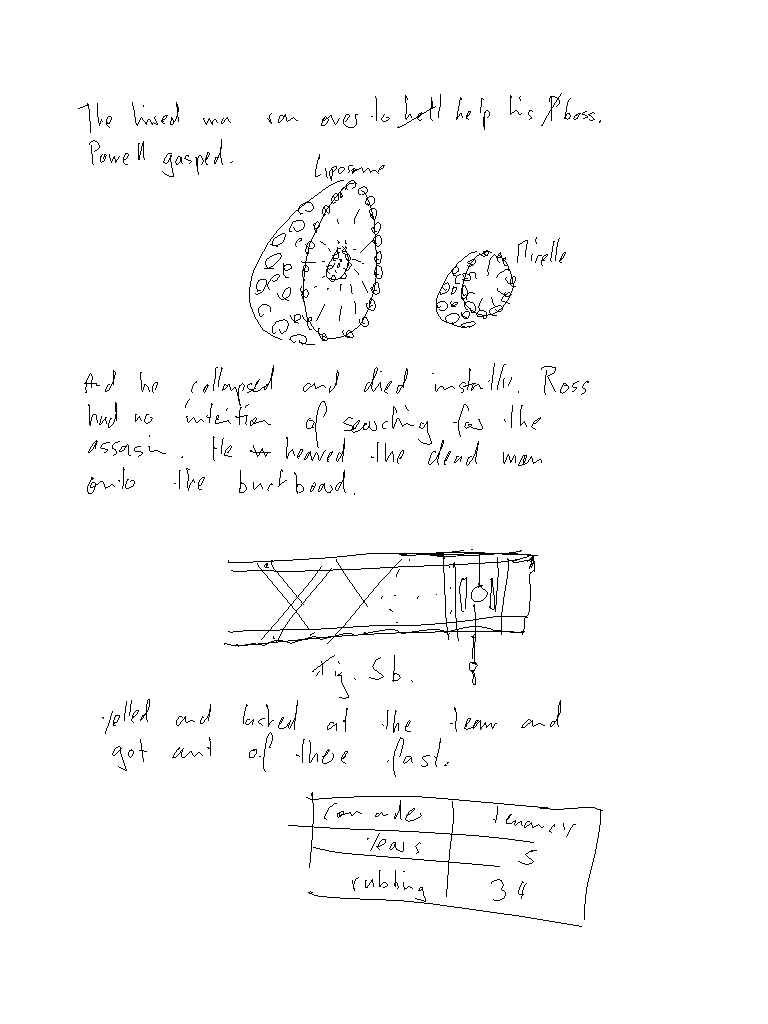 The hired man ran over to help his boss.
Powell gasped.
Liposome
Micelle
And he collapsed and died instantly. Ross
had no intention of searching for the
assasin. He heaved the dead man
onto the buckboard.
Fig. 5b.
yelled and lashed at the team and
got out of there fast.
comrades
years 5
rubbing 34